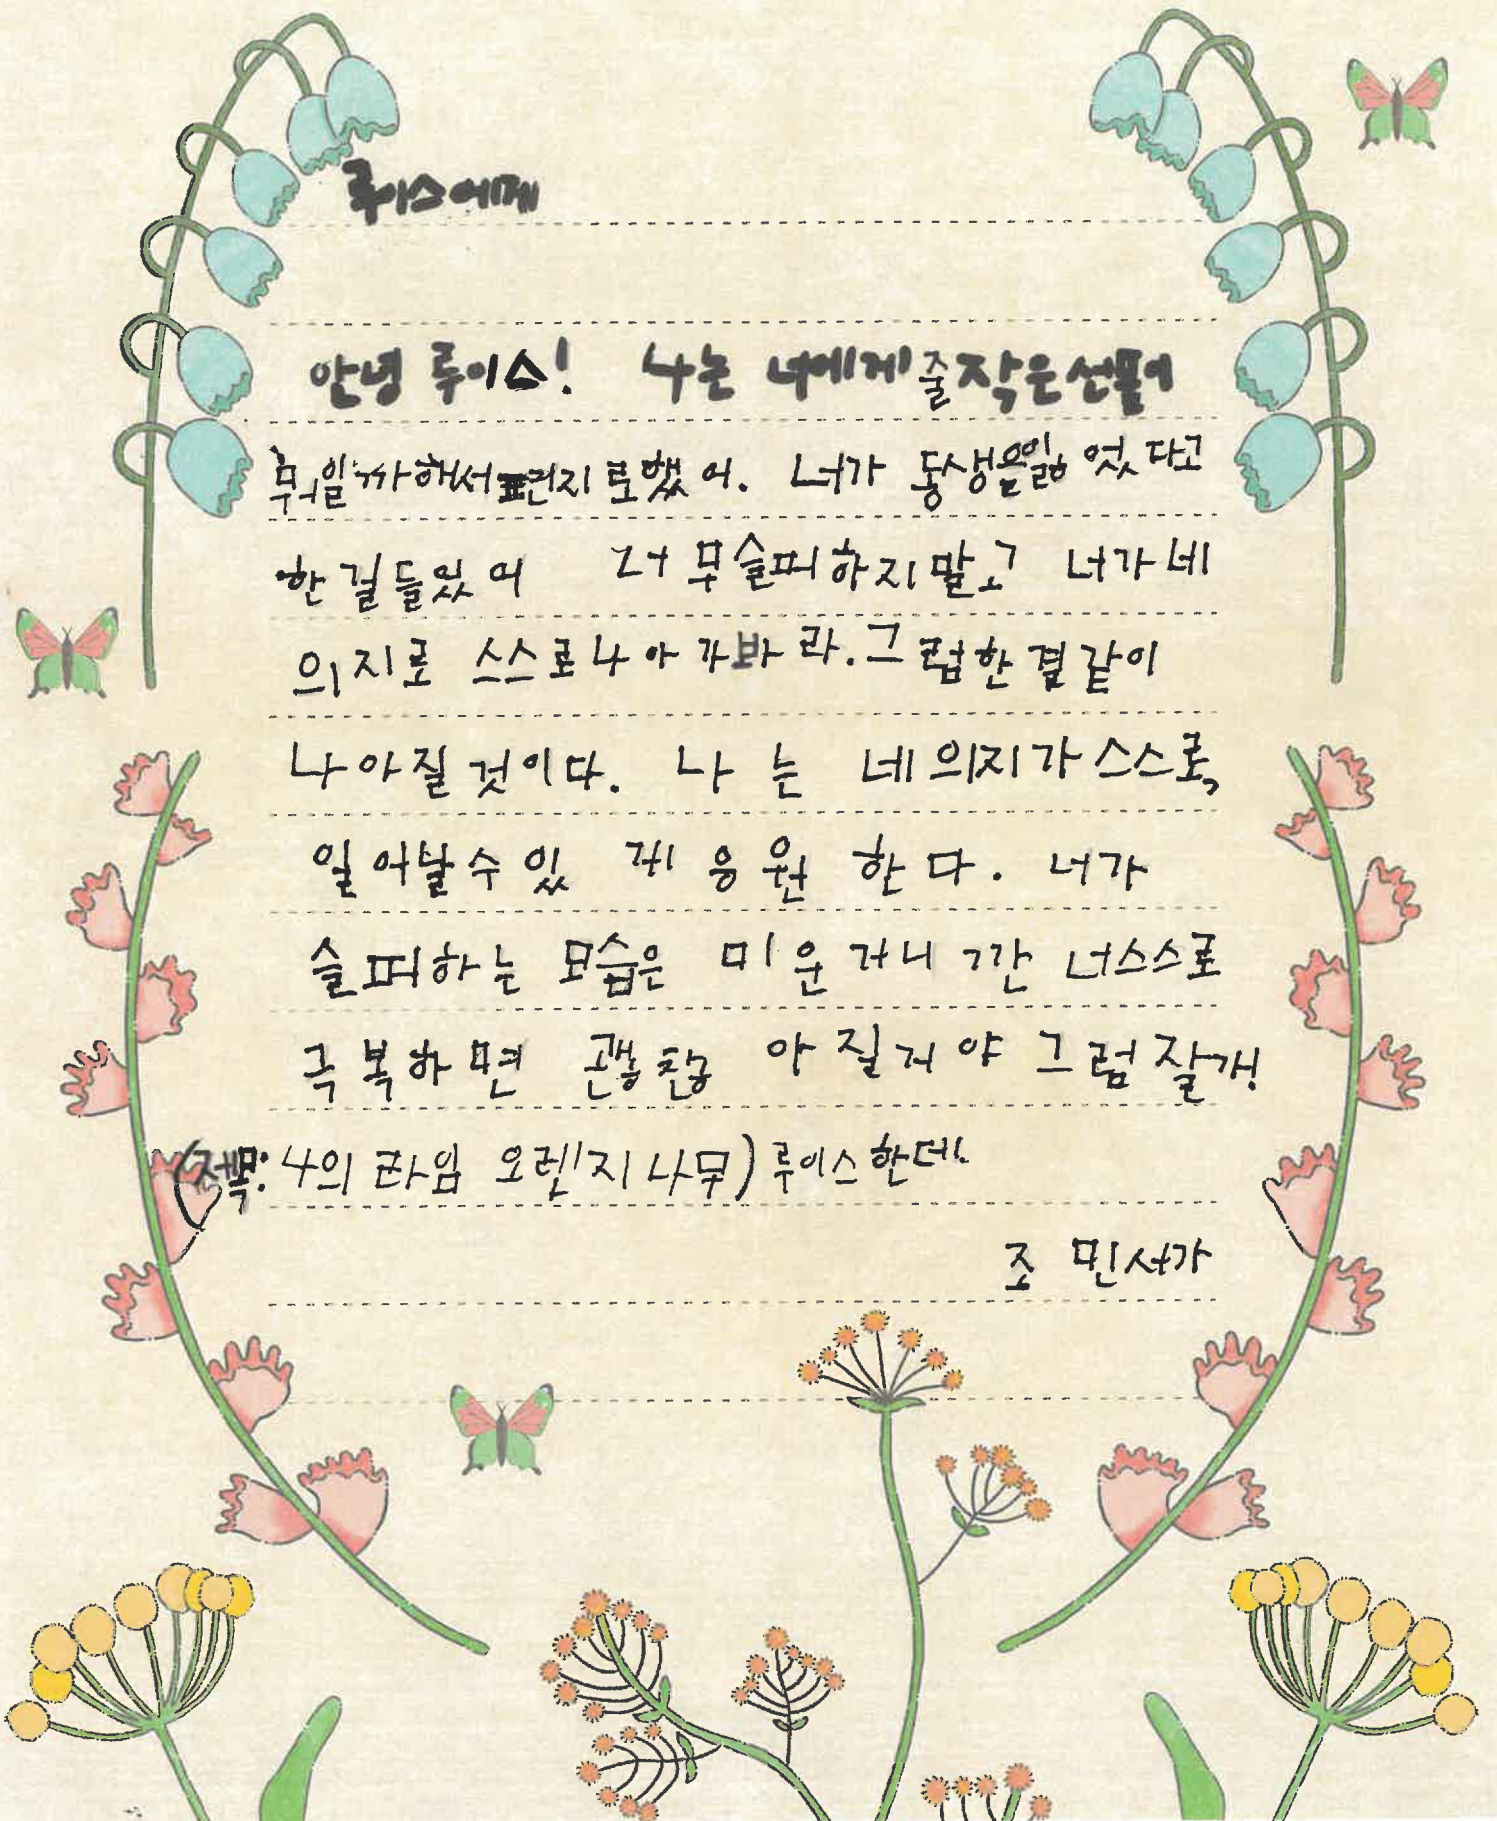 루이스에게
안녕 루이스! 나는 너에게 줄 작은 선물이
뭐일까 해서 편지로했어. 너가 동생을잃었다고
한 걸들있어 너무슬피하지말고 너가네
의지로 스스로나아가바라. 그럼한결같이
나아질것이다. 나는 네의지가스스로,
일어날수있게 응원한다. 너가
슬피하는 모습은 미운거니깐 너스스로
극복하면 괞찮아질거야 그럼잘가!
(제목: 나의 라임 오렌지나무) 루이스한데.
조 민서가